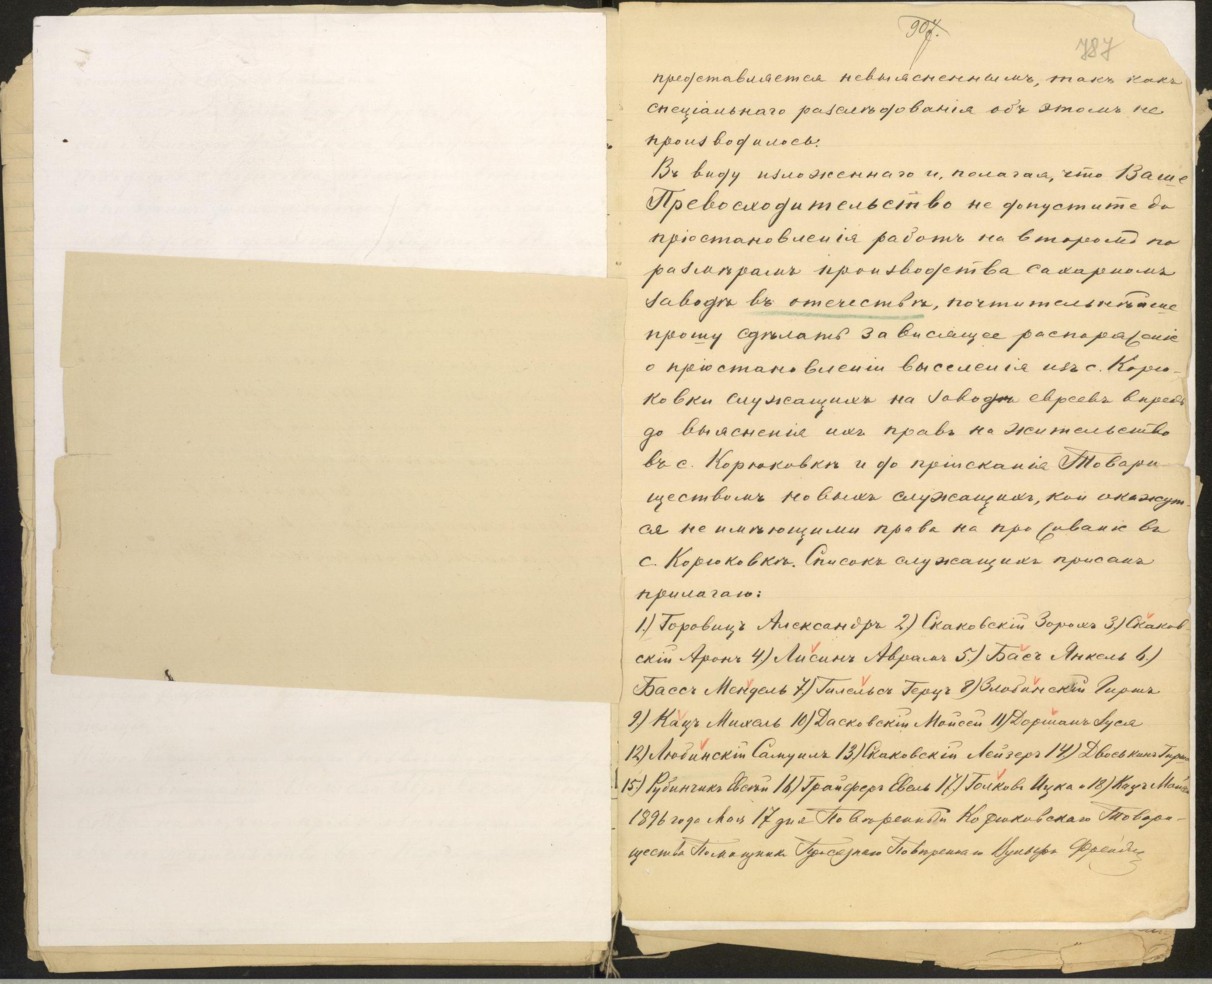 907.
787
представляется невыясненнымъ, такъ какъ
спеціальнаго разслѣдованія объ этомъ не
производилось.
Въ виду изложеннаго и, полагая, что Ваше
Превосходительство не допустите до
пріостановленія работъ на второмъ по
размѣрамъ производства сахарномъ
заводѣ въ отечествѣ, почтительнѣйше
прошу сдѣлать зависящее распоряженіе
о пріостановленіи выселенія изъ с. Корю-
ковки служащихъ на заводѣ евреевъ впредь
до выясненія ихъ правъ на жительство
въ с. Корюковкѣ и до пріисканія Товари
ществомъ новыхъ служащихъ, кои окажут-
ся не имѣющими права на проживаніе въ
с. Корюковкѣ. Списокъ служащихъ при семъ
прилагаю:
1) Горовицъ Александръ 2) Скаковскій Зорохъ 3) Скаков-
скій Аронъ 4) Лисинъ Аврамъ 5) Басъ Янкель 6)
Бассъ Мендель 7) Гилельсъ Герцъ 8) Злобинскій Гиршъ
9) Кацъ Михель 10) Дасковскій Мойсей 11) Дорманъ Зуся
12) Любинскій Самуилъ 13) Скаковскій Лейзеръ 14) Двоськинъ
15) Рубинчикъ Евсѣй 16) Грайферъ Евель 17) Голковъ Ицка и 18) Кацъ
1896 года Мая 17 дня Повѣренный Корюковскаго Товари-
щества Помощникъ Присяжнаго Повѣреннаго